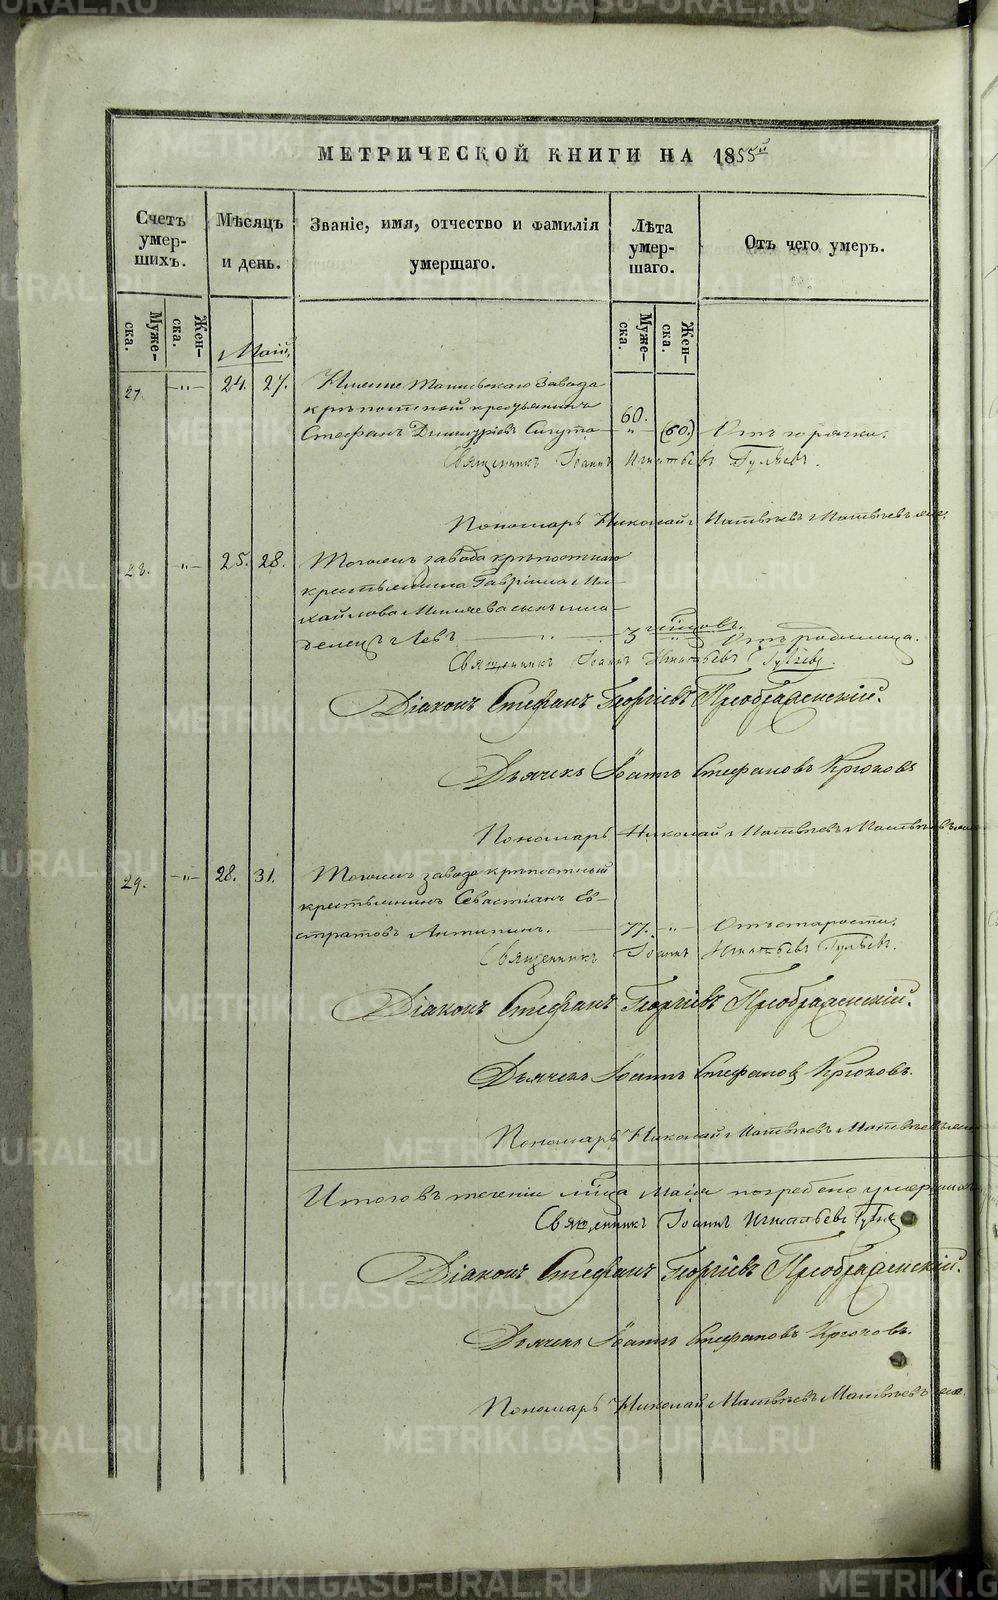 МЕТРИЧЕСКОЙ КНИГИ НА 1855й
Счетъ умер-шихъ.
Мѣсяцъ и день.
Званіе, имя, отчество и фамилія умершаго.
Лѣта умер-шаго.
Отъ чего умеръ.
Муже-ска.
Жен-ска.
Муже-ска.
Жен-ска.
Маій.
27. —"— 24. 27.
завода
крѣпостный крестьянинъ
Стефанъ Димитріевъ 60. " (60.) Отъ горячки.
Священникъ Іоаннъ Игнатьевъ
Пономарь Николай Матвѣевъ
28. —"— 25. 28. Тогожъ завода крѣпостнаго
крестьянина Гавріила Ми-
хайлова сынъ мла-
денецъ Левъ 3 " Отъ родимца.
Священникъ Іоаннъ Игнатьевъ
Діаконъ Стефанъ Георгіевъ Преображенскій.
Дьячекъ Іоаннъ Стефановъ Крюковъ
Пономарь Николай Матвѣевъ
29. —"— 28. 31. Тогожъ завода крѣпостный
крестьянинъ Севастіанъ Ев-
стратовъ Антипинъ. 77. " Отъ старости.
Священникъ Іоаннъ Игнатьевъ
Діаконъ Стефанъ Георгіевъ Преображенскій.
Дьячекъ Іоаннъ Стефановъ Крюковъ.
Пономарь Николай Матвѣевъ
Итого въ теченіи мѣсяца маія погребено
Священникъ Іоаннъ Игнатьевъ
Діаконъ Стефанъ Георгіевъ Преображенскій.
Дьячекъ Іоаннъ Стефановъ Крюковъ.
Пономарь Николай Матвѣевъ
METRIKI.GASO-URAL.RU